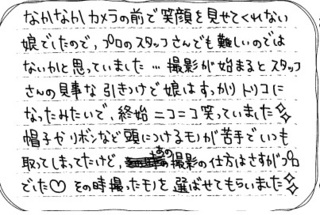 なかなかカメラの前で笑顔を見せてくれない
娘でしたので、プロのスタッフさんでも難しいのでは
ないかと思っていました…撮影が始まるとスタッフ
さんの見事な引きつけで娘はすっかりトリコに
なったみたいで、終始ニコニコ笑っていました
帽子やリボンなど頭につけるモノが苦手でいつも
取ってしまってたけど、あの撮影の仕方はさすがプロ
でした♡その時撮ったモノを選ばせてもらいました